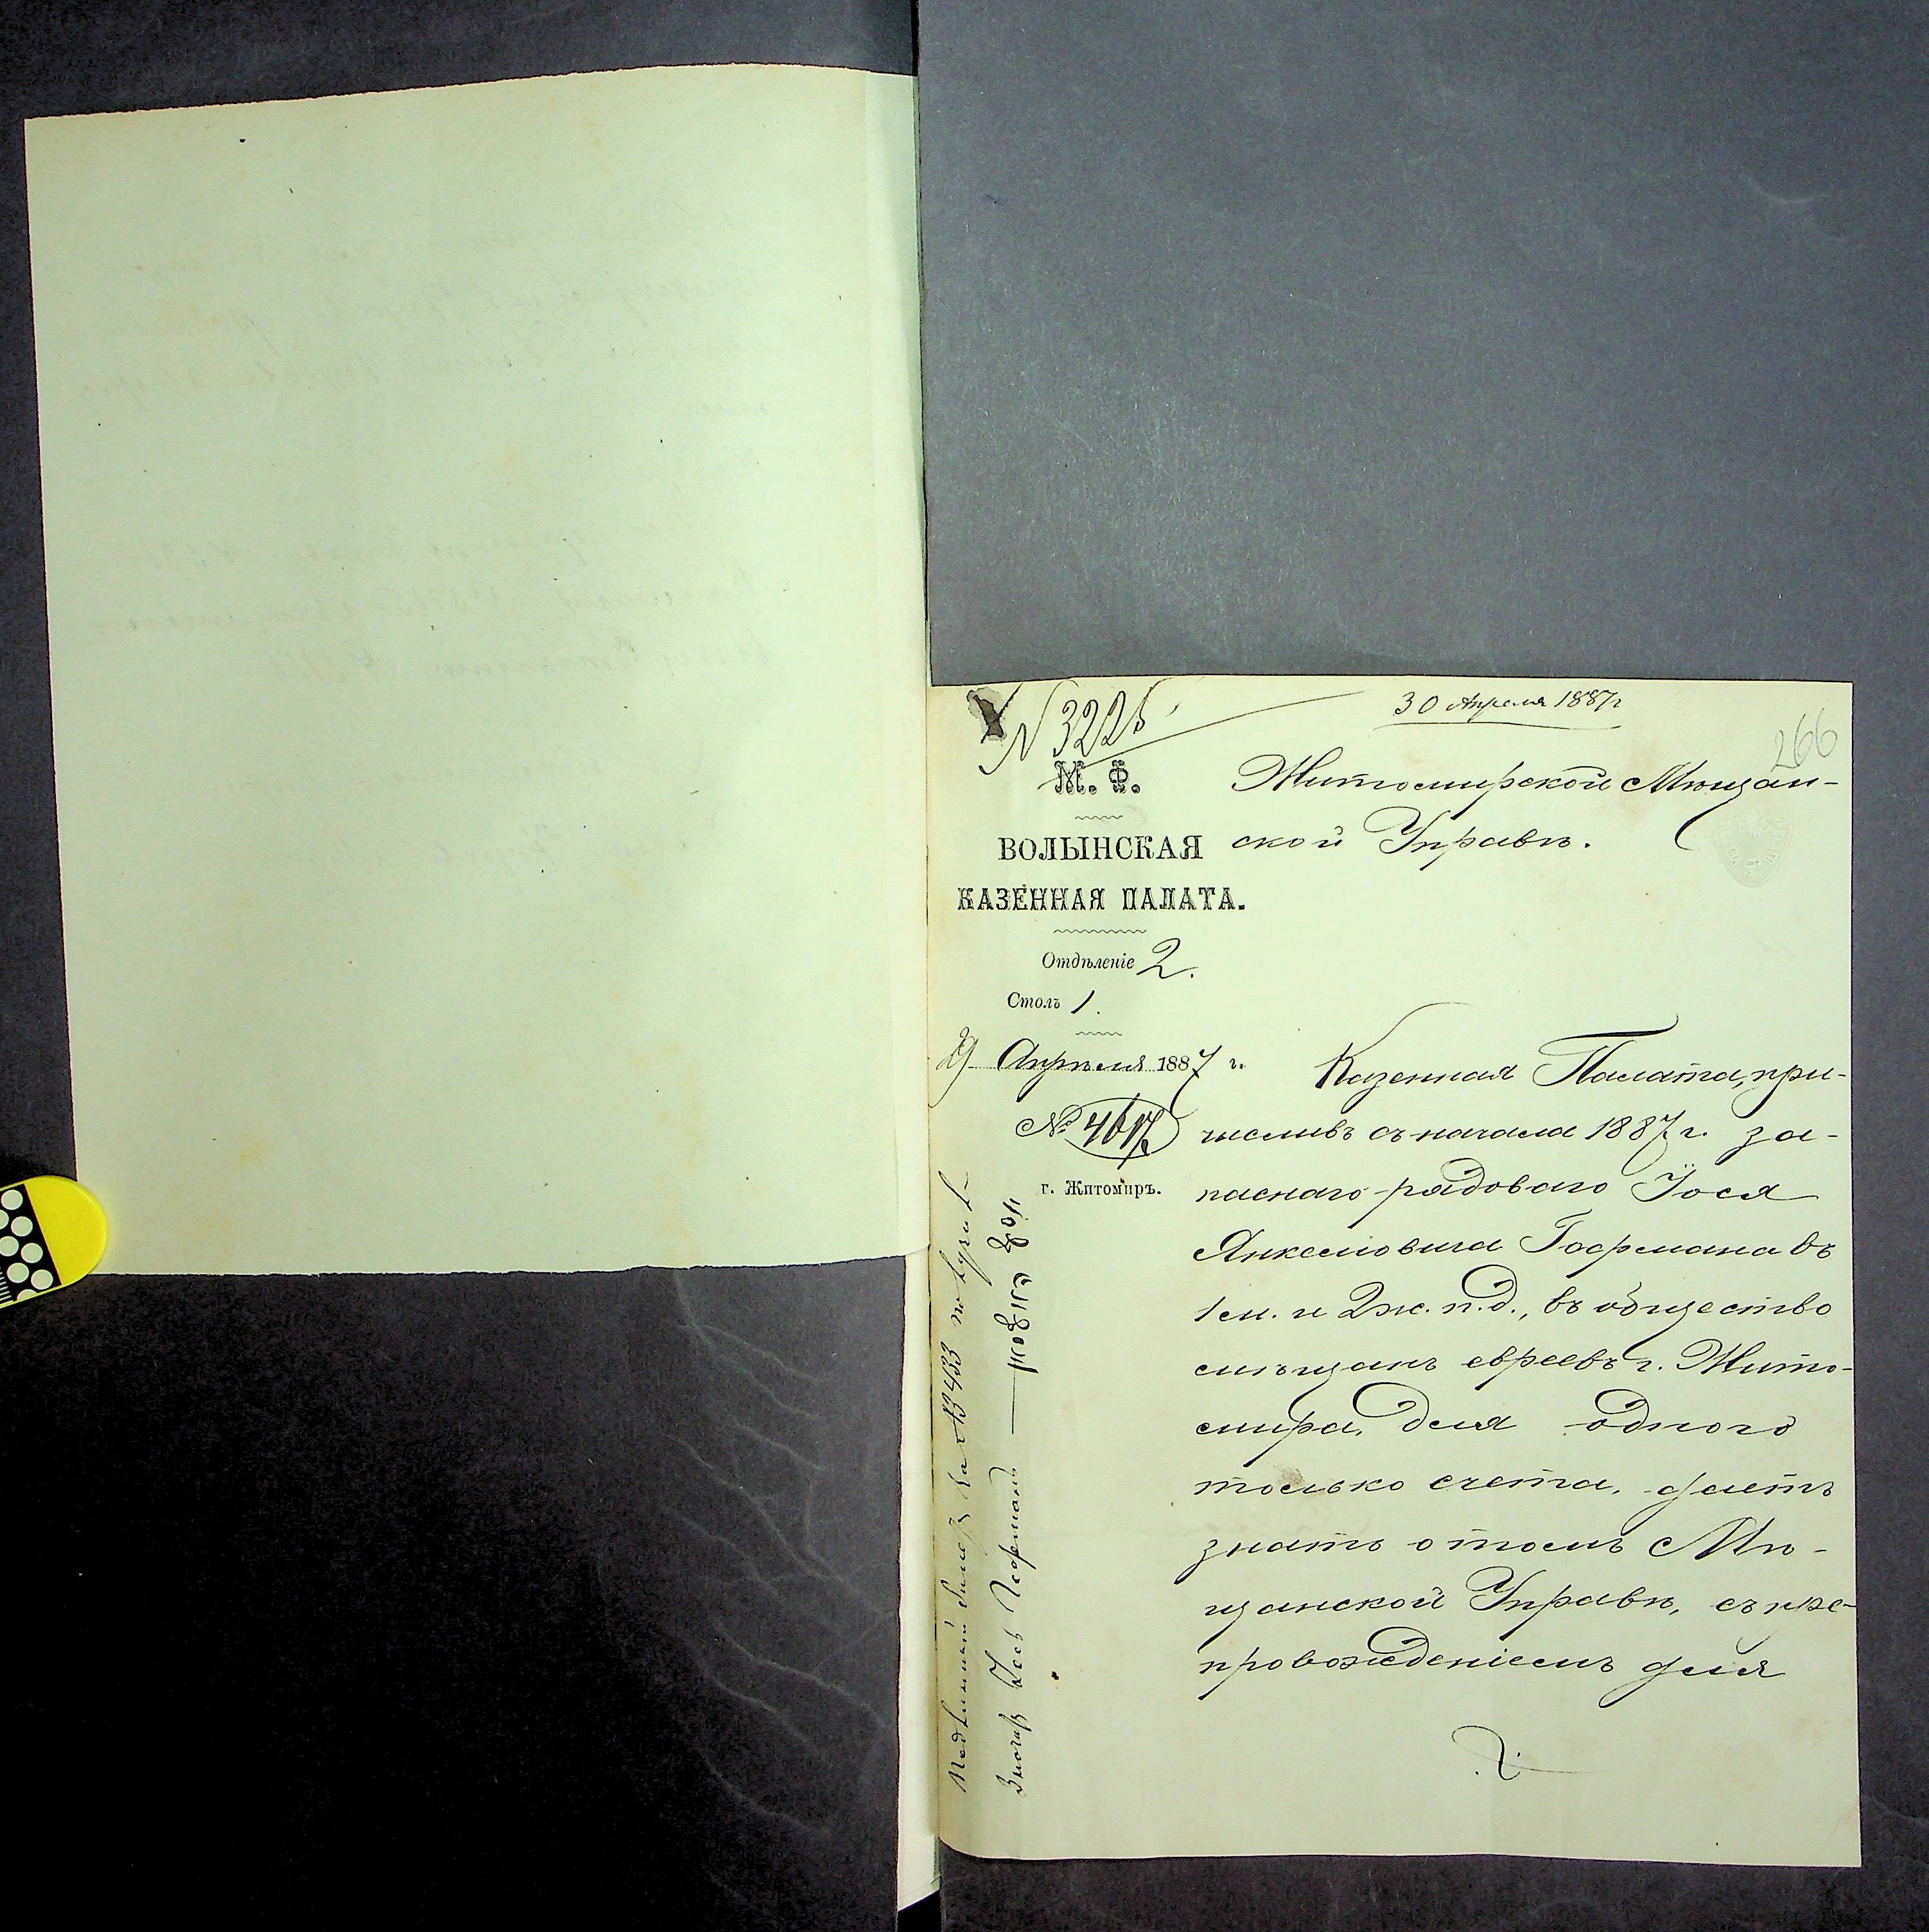 № 3225
30 Апреля 1887 г
266
М. Ф.
ВОЛЫНСКАЯ
КАЗЕННАЯ ПАЛАТА.
Отдѣленіе 2.
Столъ 1.
29 Апрѣля 1887 г.
№ 4617
г. Житомиръ.
Житомирской Мѣщан-
ской Управѣ.
Казенная Палата, при-
числивъ съ начала 1887 г. за-
паснаго рядоваго Іося
Янкелювича Гофмана въ
1 м. и 2 ж. п. д., въ общество
мѣщанъ евреевъ г. Жито-
мира, для одного
только счета, даетъ
знать о томъ Мѣ-
щанской Управѣ, съ пре-
провожденіемъ для
билетъ за № 433
Іось Гофманъ